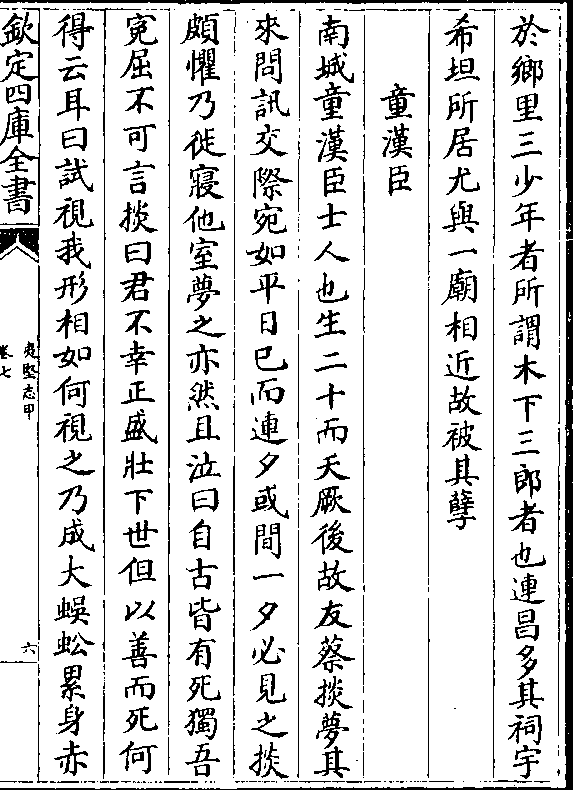 於鄉里三少年者所謂木下三郎者也連昌多其祠宇
希坦所居尤與一廟相近故被其孽
童漢臣
南城童漢臣士人也生二十而夭厥後故友蔡掞夢其
來問訊交際宛如平日已而連夕或間一夕必見之掞
頗懼乃徙寢他室夢之亦然且泣曰自古皆有死獨吾
寃屈不可言掞曰君不幸正盛壯下世但以善而死何
得云耳曰試視我形相如何視之乃成大蜈蚣累身赤
欽定四庫全書
夷堅志甲
卷七
六